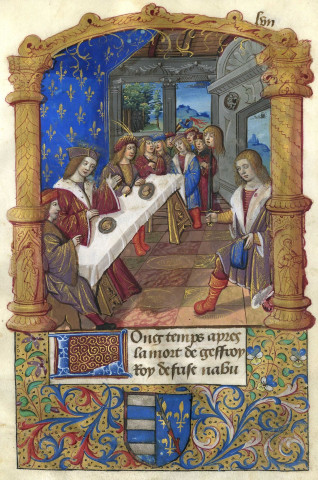 lxvii
Long temps apres
la mort de geffroy
Roy de fuse nabu